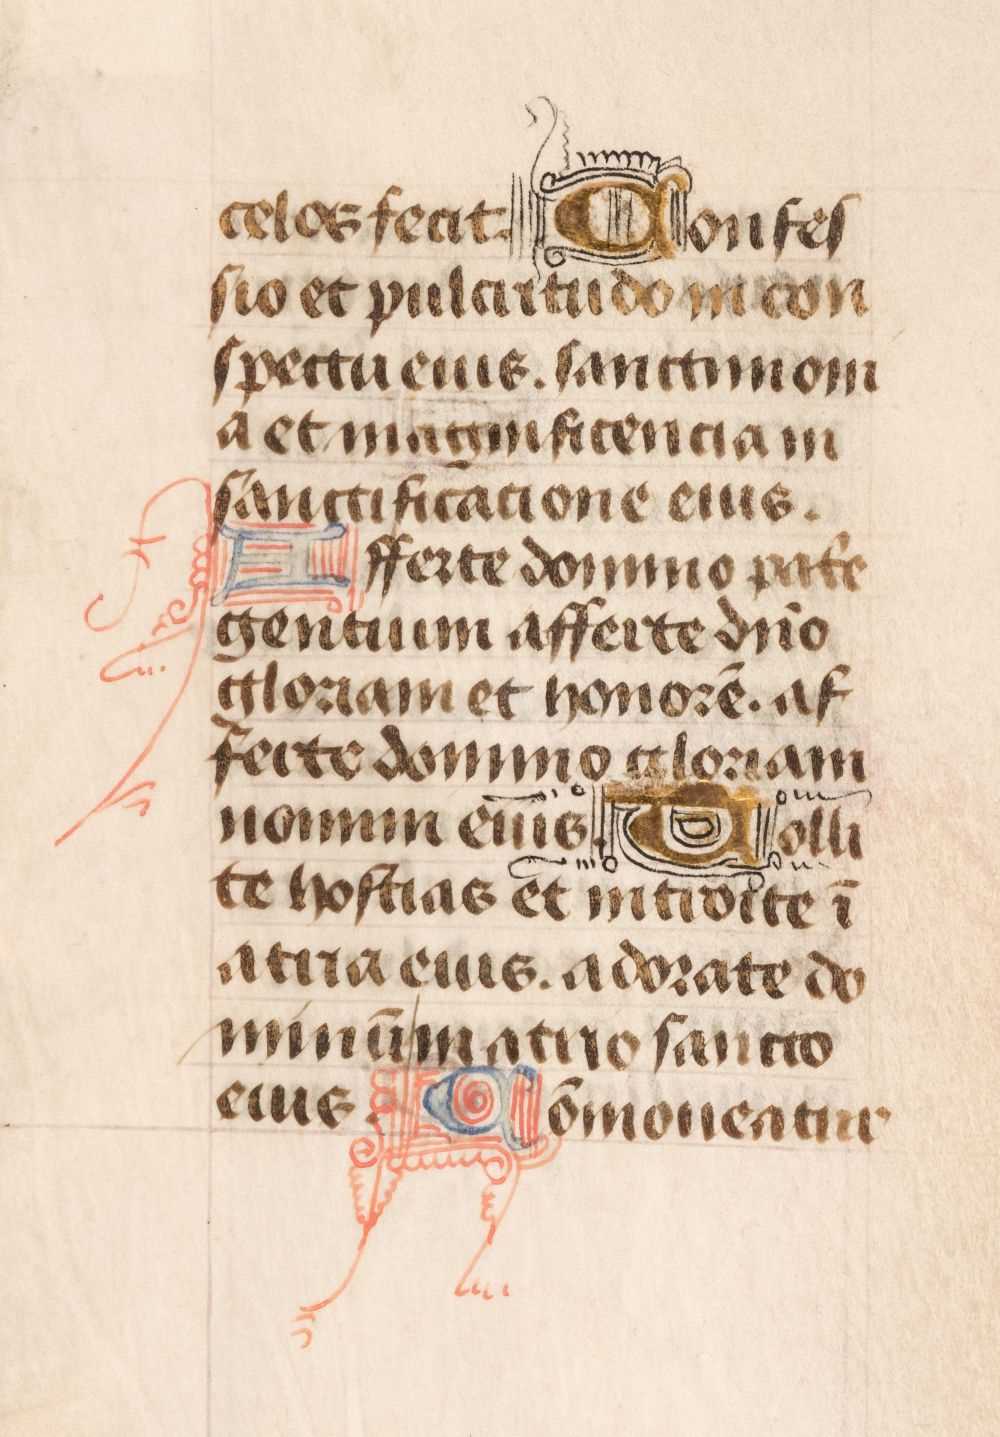 celos fecit. Confes
sio et pulcritudo in con
spectu eius. sanctimoni
a et magnificencia in
sanctificacione eius.
Afferte domino patrie
gentium afferte dño
gloriam et honorē. af
ferte domino gloriam
nomini eius. Tolli
te hostias et introite ī
atria eius. adorate do
minūm atrio sancto
eius. Cōmoueatur